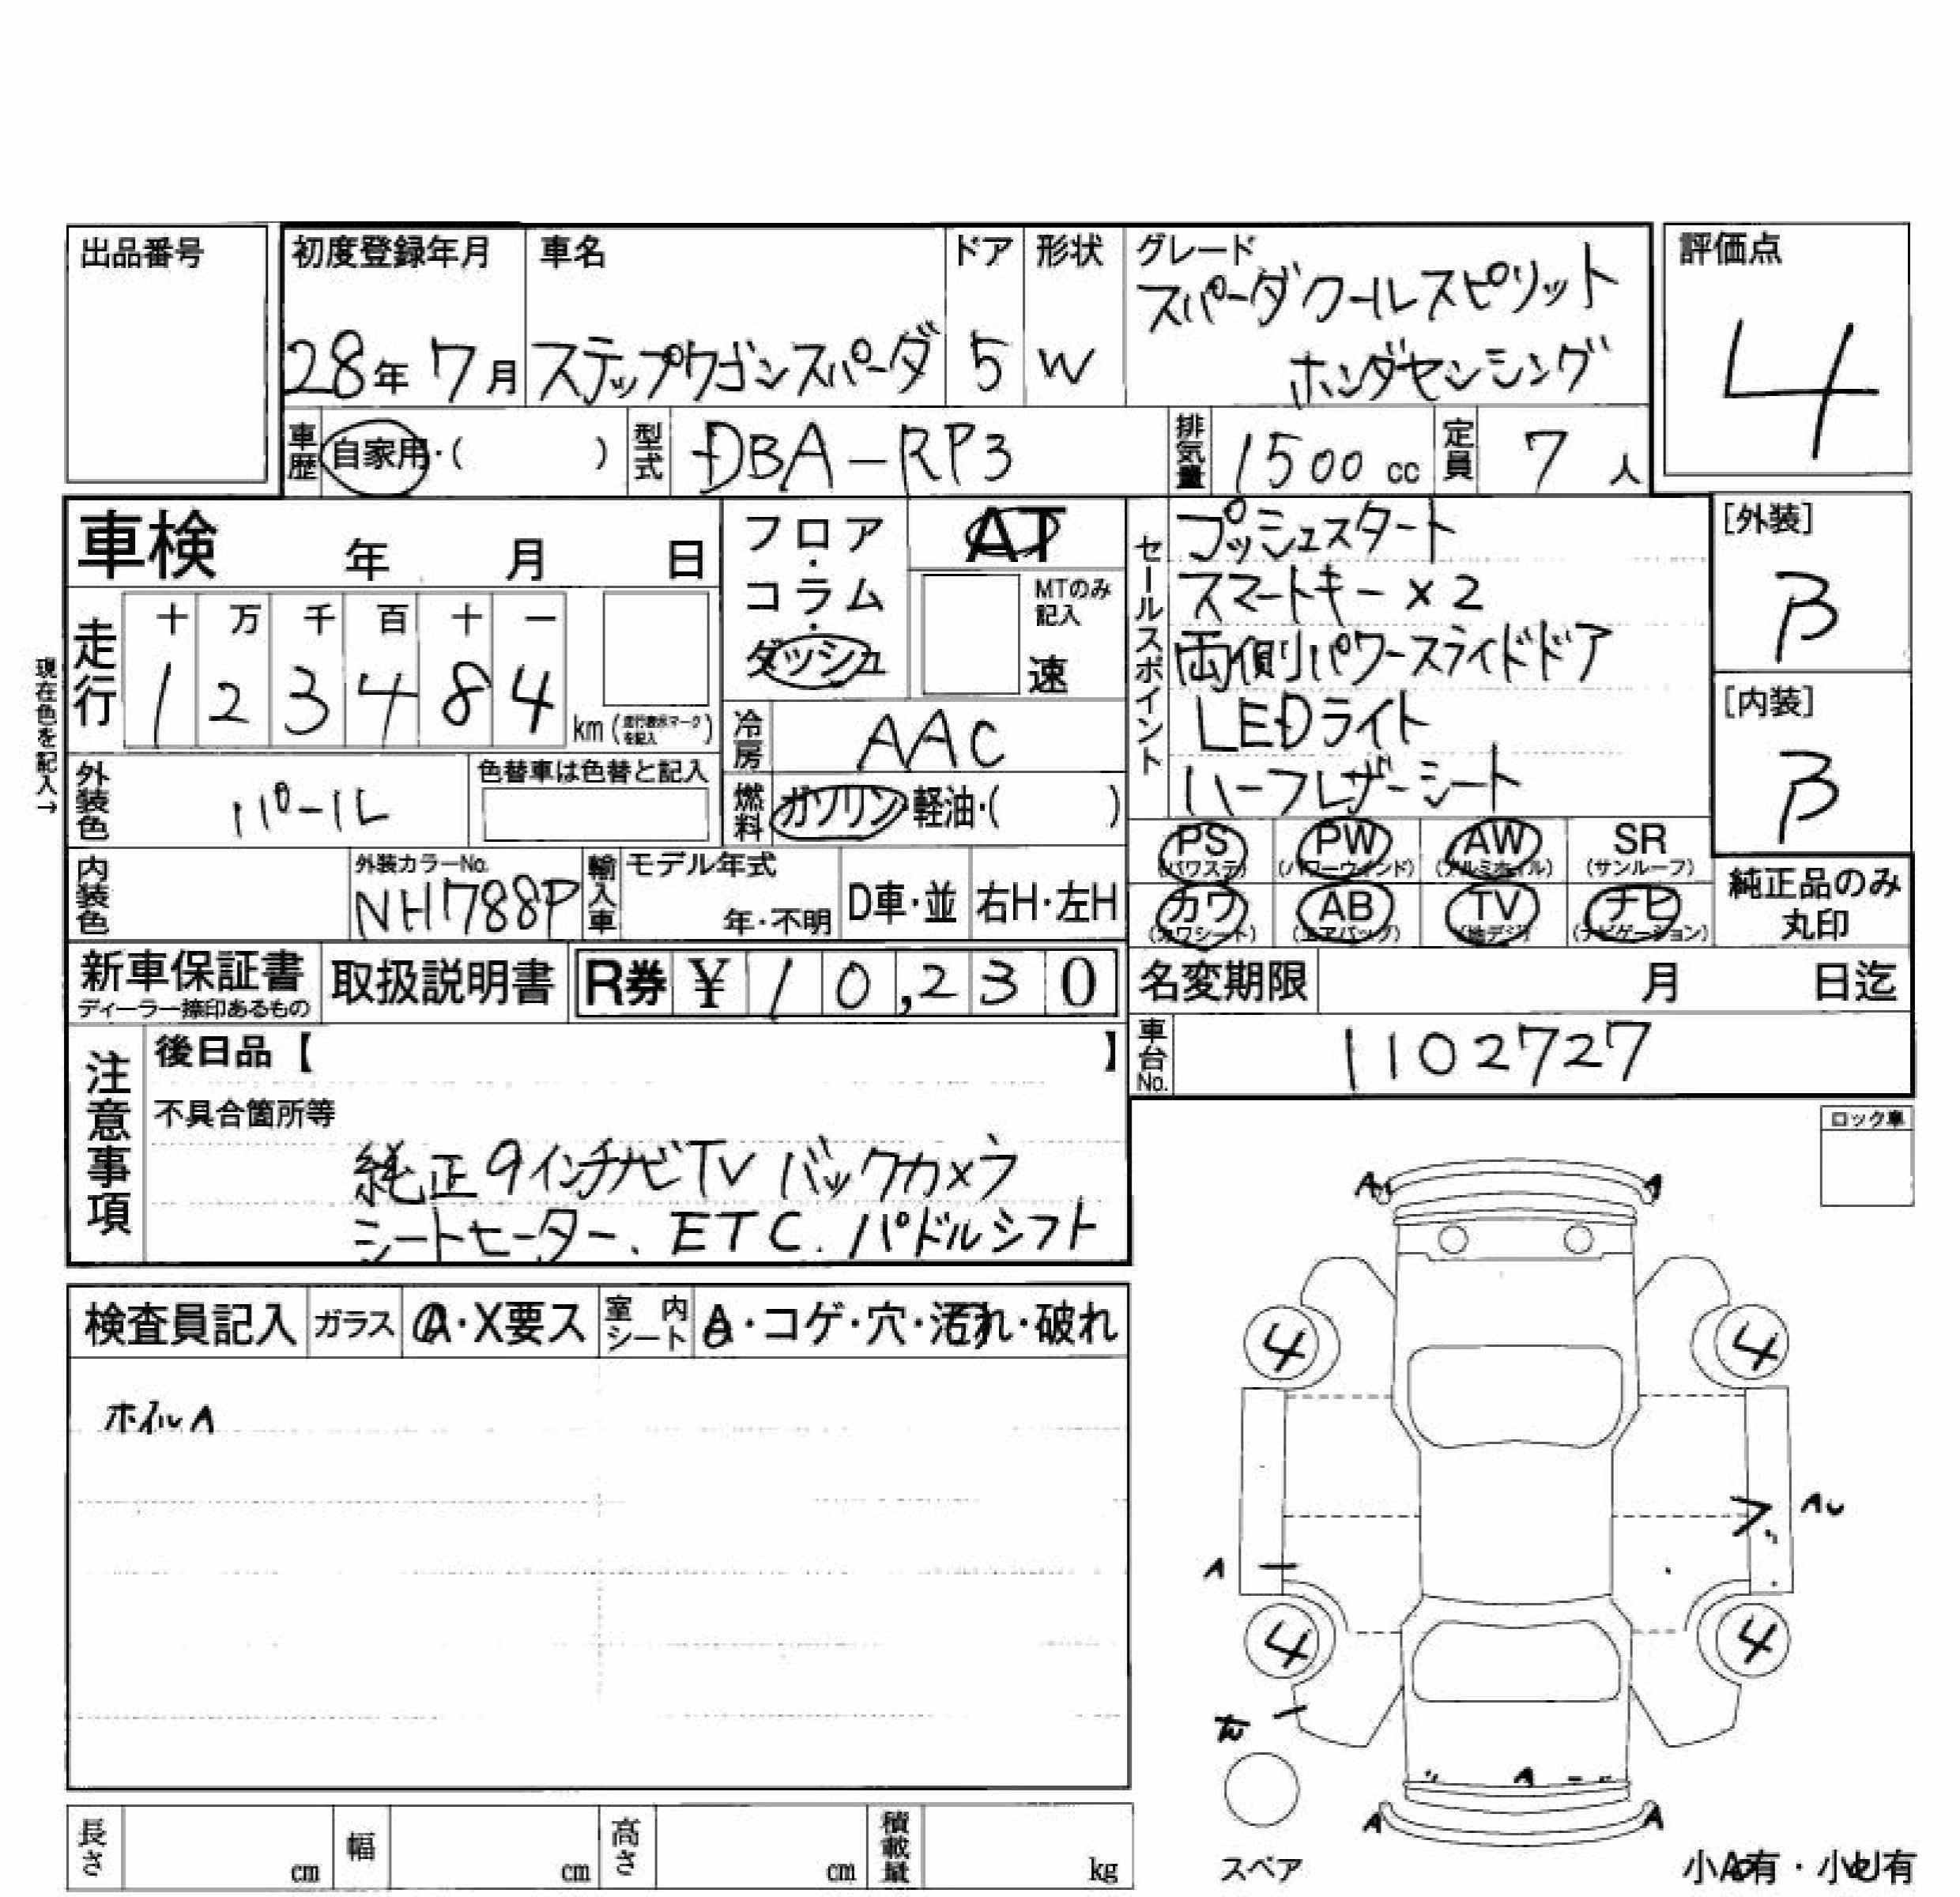 出品番号
初度登録年月 車名 ドア 形状 グレード 評価点
スパーダクールスピリット
28年 7月 ステップワゴンスパーダ 5 W ホンダセンシング 4
車歴 自家用・( ) 型式 DBA-RP3 排気量 1500 cc 定員 7 人
車検 年 月 日
フロア・コラム・ダッシュ
AT
MTのみ記入
速
セールスポイント
プッシュスタート
スマートキー×2
両側パワースライドドア
LEDライト
ハーフレザーシート
[外装]
B
[内装]
B
現在色を記入→
走行 十 万 千 百 十 一
1 2 3 4 8 4 km (走行表示マークを記入)
冷房 AAC
外装色 パール 色替車は色替と記入
燃料 ガソリン・軽油・( )
PS (パワステ) PW (パワーウインド) AW (アルミホイル) SR (サンルーフ)
カワ (カワシート) AB (エアバック) TV (地デジ) ナビ (ナビゲーション)
純正品のみ
丸印
内装色 外装カラーNo. NH788P 輸入車 モデル年式 年・不明 D車・並 右H・左H
新車保証書 ディーラー捺印あるもの 取扱説明書 R券 ¥ 10,230
名変期限 月 日迄
車台No. 1102727
注意事項
後日品【 】
不具合箇所等
純正9インチナビTV バックカメラ
シートヒーター、ETC. パドルシフト
ロック車
検査員記入 ガラス A・X要ス 室内シート A・コゲ・穴・汚れ・破れ
ホイルA
A A
4 4
AU
A
4 4
A
A A
スペア
小A有・小U有
長さ cm 幅 cm 高さ cm 積載量 kg